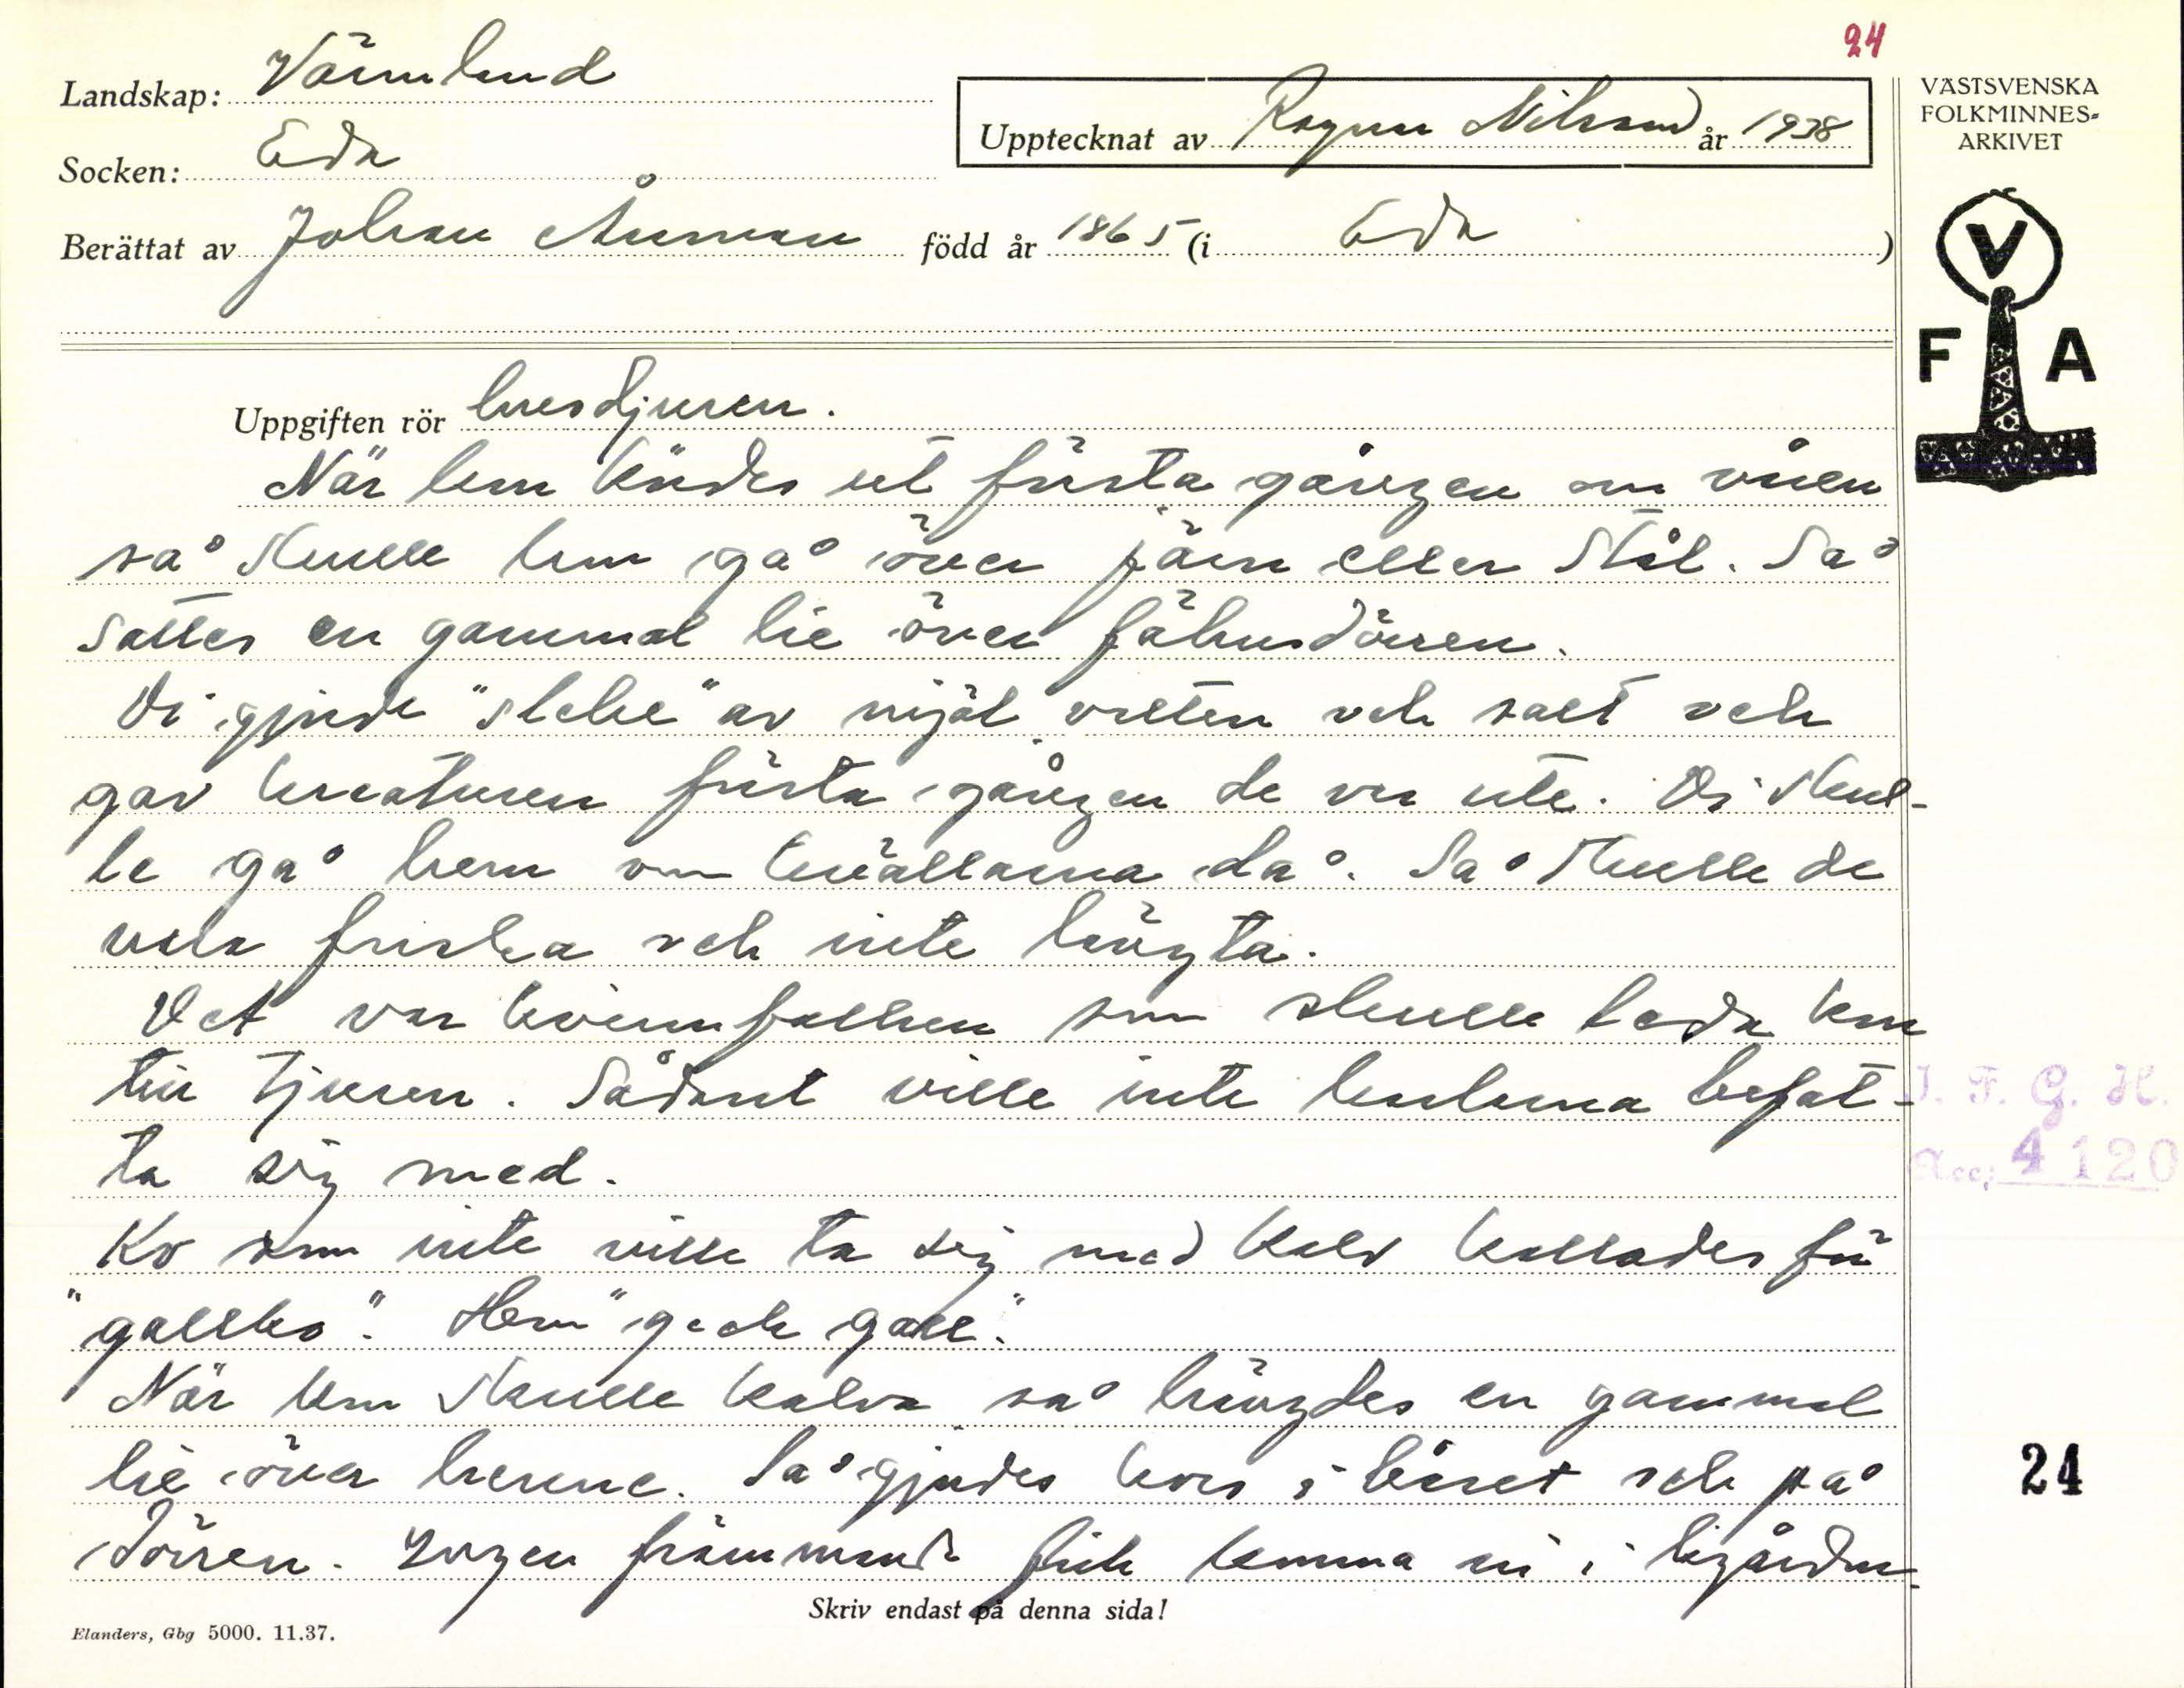 24
Landskap: Värmland
Socken: Eda
Upptecknat av Ragnar Nilsson år 1938
Berättat av Johan Åmman född år 1865 (i Eda)
VÄSTSVENSKA
FOLKMINNES-
ARKIVET
V
F A
Uppgiften rör husdjuren.
När kom kördes ut första gången om våren
så skulle hon gå över järn eller stål. Så
sattes en gammal lie över fähusdörren.
Di gjorde "sleke" av mjöl vatten och salt och
gav kreaturen första gången de var ute. Di skul-
le gå hem om kvällarna då. Så skulle de
vara friska och inte längta.
Det var kvinnfolken som skulle leda kon
till tjuren. Sådant ville inte karlarna befat-
ta sig med.
Ko som inte ville ta sig med kalv kallades för
"gallko". Hon "geck gall".
När kon skulle kalva så hängdes en gammal
lie över henne. Så gjordes kors i båset och på
dörren. Ingen främmande fick komma in i ligården.
Skriv endast på denna sida!
Elanders, Gbg 5000. 11.37.
I. F. G. H.
Acc; 4120
24